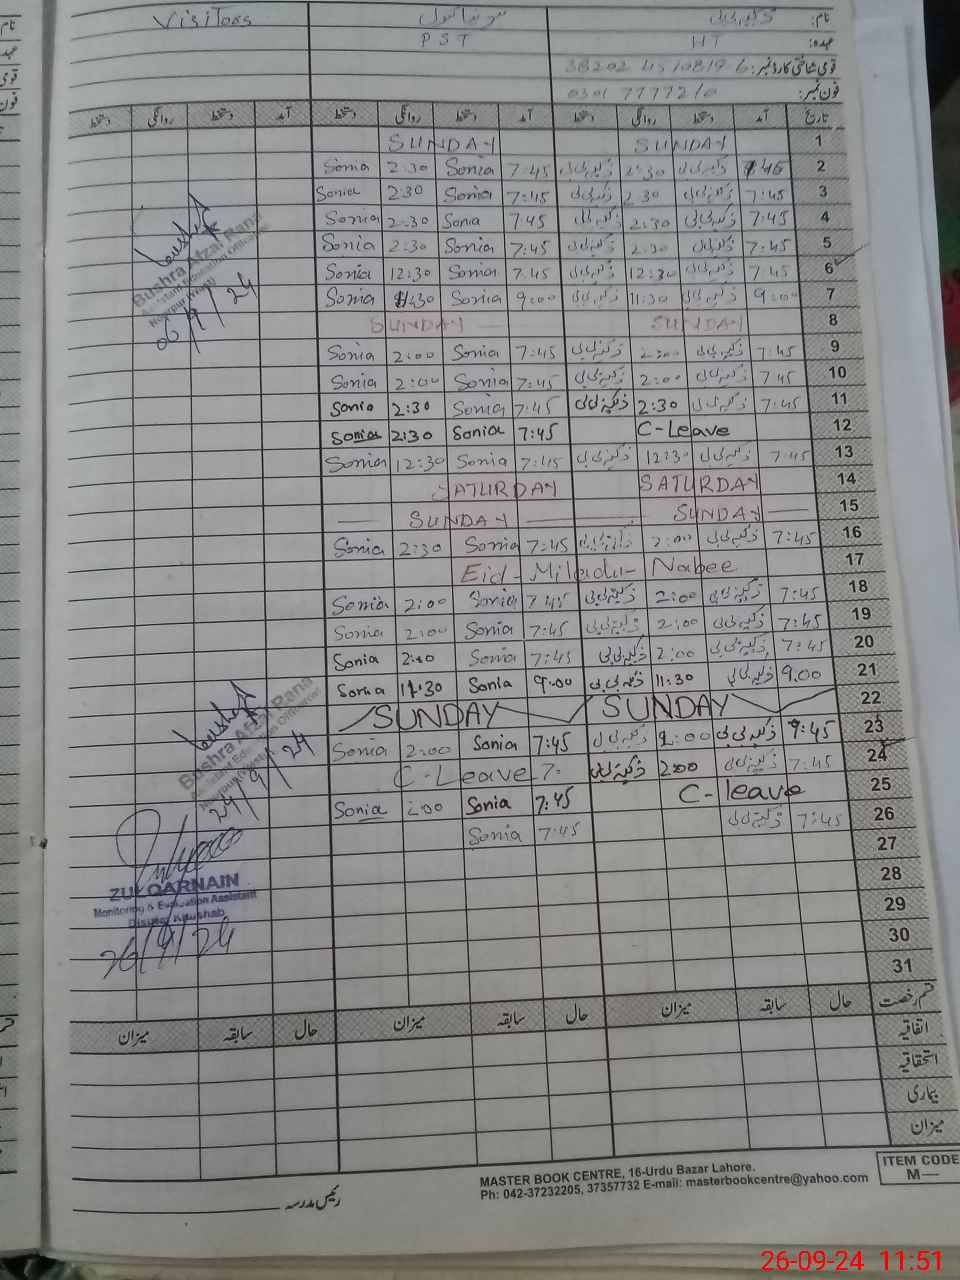 نام: ذکیہ بی بی سونیا بتول Visitors
عہدہ: HT PST
قومی شناختی کارڈ نمبر: 38202 4510819 6
فون نمبر: 0301 7777210
تاریخ آمد دستخط روانگی دستخط آمد دستخط روانگی دستخط آمد دستخط روانگی دستخط
1 SUNDAY SUNDAY
2 7:45 ذکیہ بی بی 2:30 ذکیہ بی بی 7:45 Sonia 2:30 Sonia
3 7:45 ذکیہ بی بی 2:30 ذکیہ بی بی 7:45 Sonia 2:30 Sonia
4 7:45 ذکیہ بی بی 2:30 ذکیہ بی بی 7:45 Sonia 2:30 Sonia
5 7:45 ذکیہ بی بی 2:30 ذکیہ بی بی 7:45 Sonia 2:30 Sonia
6 7:45 ذکیہ بی بی 12:30 ذکیہ بی بی 7:45 Sonia 12:30 Sonia
7 9:00 ذکیہ بی بی 11:30 ذکیہ بی بی 9:00 Sonia 11:30 Sonia
8 SUNDAY SUNDAY
9 7:45 ذکیہ بی بی 2:00 ذکیہ بی بی 7:45 Sonia 2:00 Sonia
10 7:45 ذکیہ بی بی 2:00 ذکیہ بی بی 7:45 Sonia 2:00 Sonia
11 7:45 ذکیہ بی بی 2:30 ذکیہ بی بی 7:45 Sonia 2:30 Sonia
12 C-Leave 7:45 Sonia 2:30 Sonia
13 7:45 ذکیہ بی بی 12:30 ذکیہ بی بی 7:45 Sonia 12:30 Sonia
14 SATURDAY SATURDAY
15 SUNDAY SUNDAY
16 7:45 ذکیہ بی بی 2:00 ذکیہ بی بی 7:45 Sonia 2:30 Sonia
17 Eid-Miladu-Nabee
18 7:45 ذکیہ بی بی 2:00 ذکیہ بی بی 7:45 Sonia 2:00 Sonia
19 7:45 ذکیہ بی بی 2:00 ذکیہ بی بی 7:45 Sonia 2:00 Sonia
20 7:45 ذکیہ بی بی 2:00 ذکیہ بی بی 7:45 Sonia 2:00 Sonia
21 9.00 ذکیہ بی بی 11:30 ذکیہ بی بی 9.00 Sonia 11:30 Sonia
22 SUNDAY SUNDAY
23 7:45 ذکیہ بی بی 2:00 ذکیہ بی بی 7:45 Sonia 2:00 Sonia
24 7:45 ذکیہ بی بی 2:00 ذکیہ بی بی C-Leave
25 C-leave 7:45 Sonia 2:00 Sonia
26 7:45 ذکیہ بی بی 7:45 Sonia
27
28
29
30
31
Bushra Afzal Rana
Assistant Education Officer
06/9/24
Bushra Afzal Rana
Assistant Education Officer
24/9/24
ZULQARNAIN
Monitoring & Evaluation Assistant
District Khushab
26/9/24
قسم رخصت حال سابقہ میزان حال سابقہ میزان حال سابقہ میزان
اتفاقیہ
استحقاقیہ
بیماری
میزان
رئیس مدرسہ
MASTER BOOK CENTRE, 16-Urdu Bazar Lahore.
Ph: 042-37232205, 37357732 E-mail: masterbookcentre@yahoo.com
ITEM CODE
M—
26-09-24 11:51